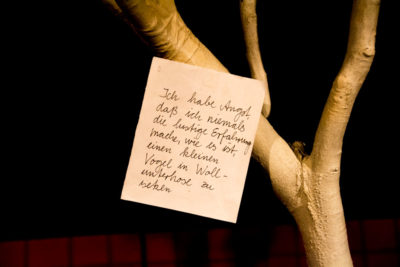 Ich habe Angst,
daß ich niemals
die lustige Erfahrung
mache, wie es ist,
einen kleinen
Vogel in Woll-
unterhose zu
sehen